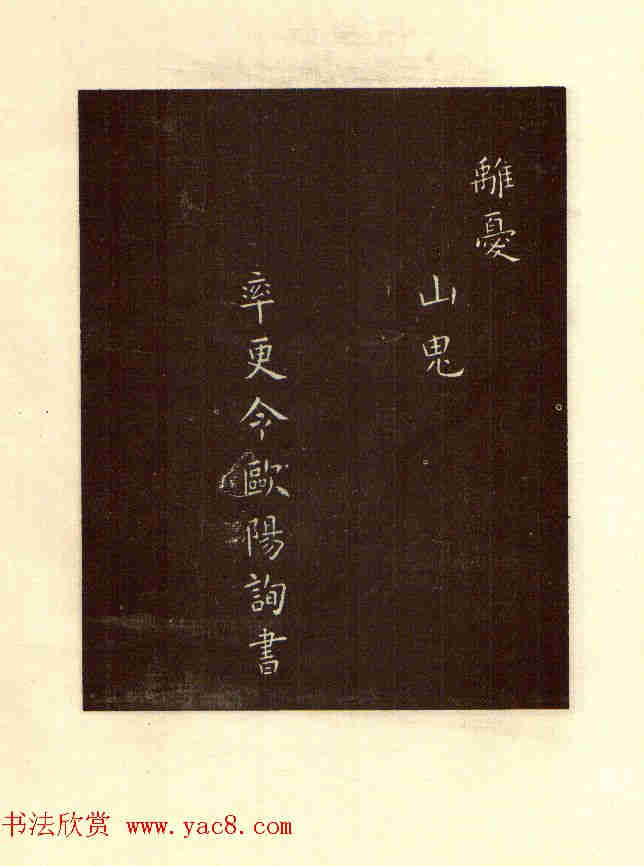 離憂
山鬼
率更令歐陽詢書
书法欣赏 www.yac8.com